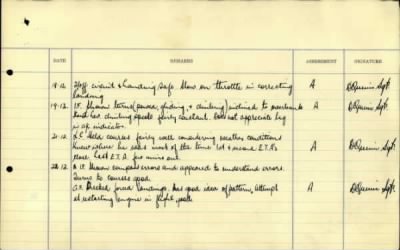 DATE REMARKS ASSESSMENT SIGNATURE
18.12 circuit & landing safe. Slow on throttle in correcting A Sgt.
landing
19.12. I.F. Shown turns (power, gliding, & climbing) inclined to overbank A Sgt.
and has climbing speeds fairly constant. Does not appreciate lag
in indicator.
21.12. Held courses fairly well considering weather conditions A Sgt.
Knew where he was most of the time 1st & second E.T.A's
good. Last E.T.A. few mins out.
22.12 Shown compass errors and appeared to understand errors.
Turns to courses good.
forced landings, has good idea of pattern, attempt A Sgt.
at restarting engine in flight